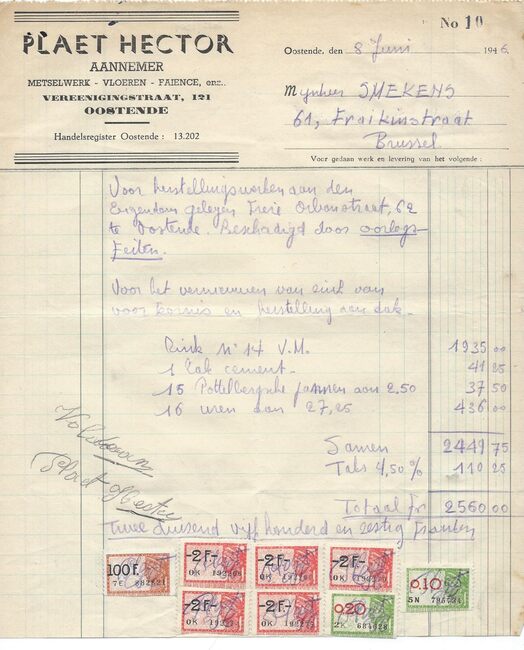 No 10
PLAET HECTOR
AANNEMER
METSELWERK - VLOEREN - FAIENCE, enz..
VEREENIGINGSTRAAT, 121
OOSTENDE
Handelsregister Oostende : 13.202
Oostende, de 8 Juni 1946.
Mynheer SMEKENS
61, Fraikinstraat
Brussel
Voor gedaan werk en levering van het volgende :
Voor herstellingswerken aan den
Eigendom gelegen Frere Orbanstraat, 62
te Oostende. Beschadigd door oorlogs-
feiten.
Voor het vernieuwen van zink van
voor kornis en herstelling aan dak.
Zink N° 14 V.M. 1935 00
1 Zak cement - 41 25
15 Pottelbergsche pannen aan 2,50 37 50
16 uren aan 27,25 436 00
Samen 2449 75
Taks 4,50 % 110 25
Totaal fr 2560 00
Twee duisend vijf honderd en zestig Franken
Voldaan
Plaet Hector
100 F.
-2F.-
-2F.-
-2F.-
0.10
-2F.-
-2F.-
0.20